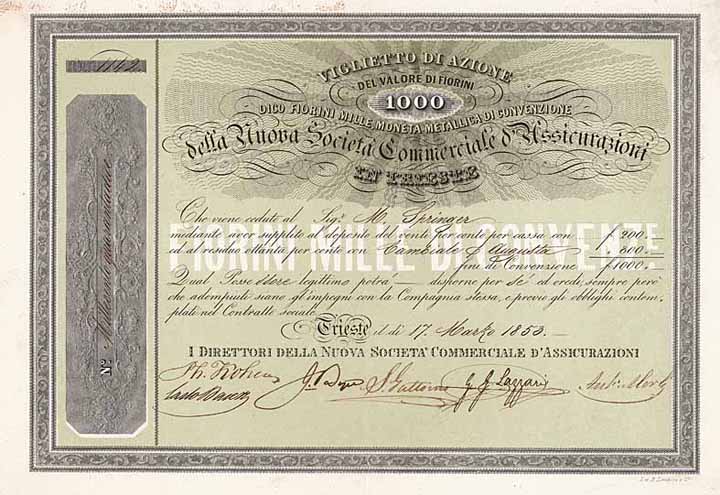 1142
Nº Mille cento quarantadue
VIGLIETTO DI AZIONE
DEL VALORE DI FIORINI
1000
DICO FIORINI MILLE MONETA METALLICA DI CONVENZIONE
della Nuova Società Commerciale d'Assicurazioni
IN TRIESTE
Che viene ceduto al Sigr. M. Springer
mediante aver supplito al deposito del venti per cento per cassa con f 200.—
ed al residuo ottanta per cento con Cambiale f Augusta „ 800.—
fini di Convenzione f 1000.—
FIORINI MILLE DI CONVENE.
Qual Possessore legittimo potrà — disporne per sè ed eredi, sempre però
che adempiuti siano gl'impegni con la Compagnia stessa, e previo gli obblighi contem-
plati nel Contratto sociale.
Trieste il dì 17. Marzo 1853.—
I DIRETTORI DELLA NUOVA SOCIETA' COMMERCIALE D'ASSICURAZIONI
G. G. Lazzari